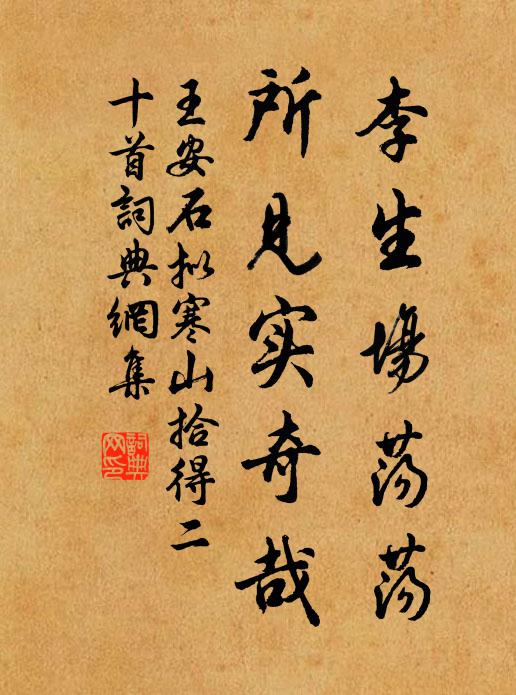 李生塲荡荡
所见实奇哉
王安石拟寒山拾得二
十首詞典網集
詞典
网印